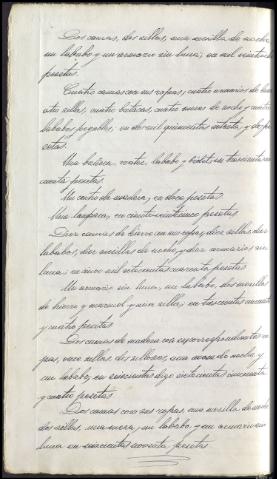 Dos camas, dos sillas, una mesilla de noche,
un lababo y un armario sin luna, en mil
pesetas.
Cuatro camas con sus ropas, cuatro armarios de luna
ocho sillas, cuatro butacas, cuatro mesas de noche y cuatro
lababos pequeños, en dos mil quinientas ochenta y dos pe-
setas.
Una butaca, lababo y bidet, en trescientas
cuenta pesetas.
Un centro de madera, en doce pesetas
Una lampara, en ciento veinticinco pesetas
Diez camas de hierro con sus ropas, diez sillas, diez
lababos, diez mesillas de noche y diez armarios sin
luna, en cinco mil setecientas cuarenta pesetas
Un armario sin luna, un lababo, dos mesillas
de hierro y marmol y una silla, en trescientas cincuenta
y cuatro pesetas
Dos camas de madera con sus correspondientes ro-
pas, once sillas, dos sillones, una mesa de noche y
un lababo, en setecientas cincuenta
y cuatro pesetas
Dos camas con sus ropas, una mesilla de noche
dos sillas, una mesa, un lababo, y un armario sin
luna en seiscientas noventa pesetas